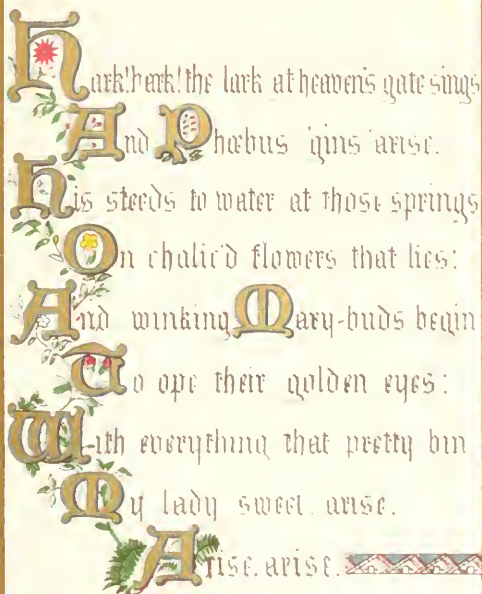 Hark! hark! the lark at heaven's gate sings
And Phœbus 'gins arise.
His steeds to water at those springs
On chalic'd flowers that lies:
And winking Mary-buds begin
To ope their golden eyes:
With everything that pretty bin
My lady sweet. arise.
Arise. arise.